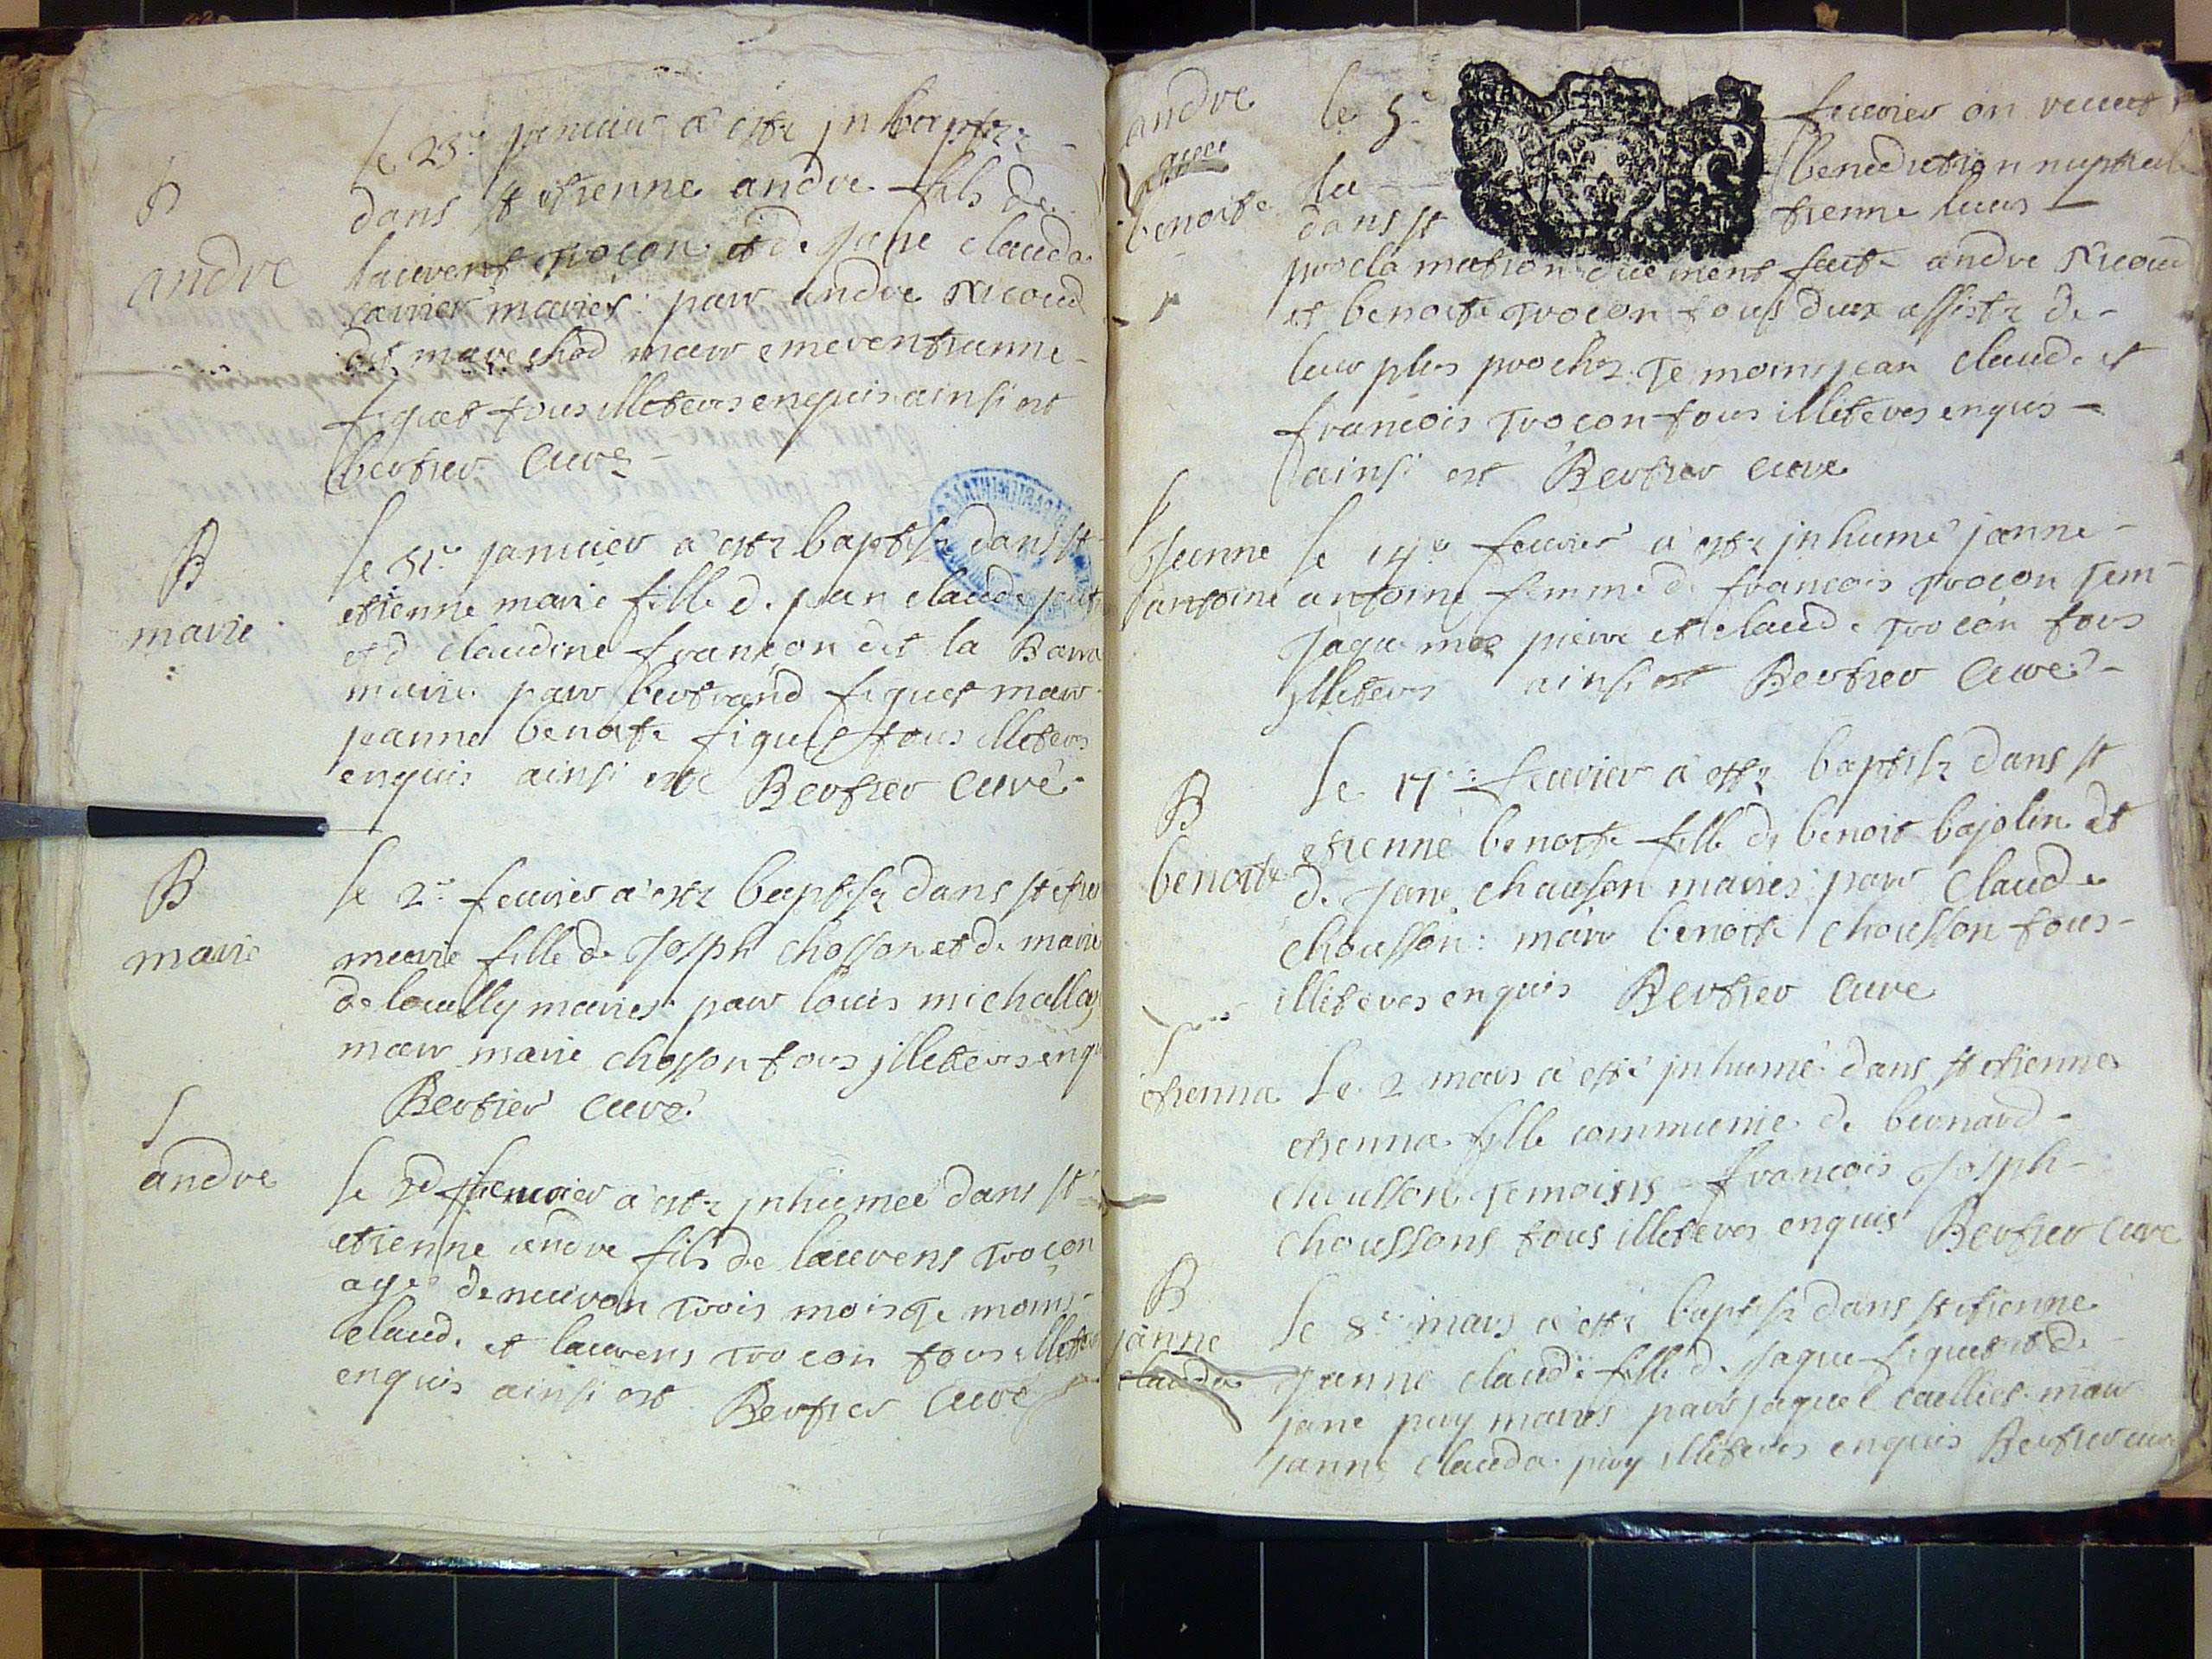 B
andre
le 25e janvier a este jn baptize
dans st etienne andre fils de
laurent trocon et de jane clauda
mariés: parr andre Nicoud
dit marechad marr emerentianne
figuet tous illeteres enquis ainsi est
bertier Curé
B
marie
le 31e janvier a este baptisé dans st
etienne marie fille de jean claude
et de claudine françon dit la
marié parr bertrand figuet marr
jeanne benoite figuet tous illeteres
enquis ainsi est Bertier Curé
B
marie
le 2e fevrier a este baptisé dans st etie
marie fille de Joseph chosson et de marie
de louelly mariés parr louis michallay
marr marie chosson tous jlleteres enqu
Bertier Curé
S
andre
le fevrier a este jnhumee dans st
etienne andre fils de laurens trocon
age denviron trois mois temoins
claude et laurens trocon tous illeter
enquis ainsi est Bertier Curé
andre
avec
benoite
le 5e fevrier on receut
la benediction nuptiale
dans st etienne leurs
proclamation duement fait andre Nicoud
et benoite trocon tous deux assisté de
leur plus proche temoins jean claude et
francois trocon tous illiteres enquis
ainsi est Bertier cure
S
Jeanne
antoine
le 14e fevrier a este jnhumé janne
antoine femme de francois trocon tem
jaque pierre et claude trocon tous
jlleteres ainsi est Bertier Curé
B
benoite
le 17e fevrier a este baptisé dans st
etienne benoite fille de benoit bajolin et
de jane chauson mariés parr claude
chousson: marr benoite chousson tous
illiteres enquis Bertier Cure
S
etienna
Le 2 mars a esté jnhumé dans st etienne
etienna fille communie de bernard
chousson temoisns francois Joseph
choussons tous illeteres enquis Bertier cure
B
janne
clauda
le 8e mars a esté baptisé dans st etienne
janne claude fille de jaque figuet et de
jane puy mariés parr jaque cuellier marr
janne clauda puy illiteres enquis Bertier cure